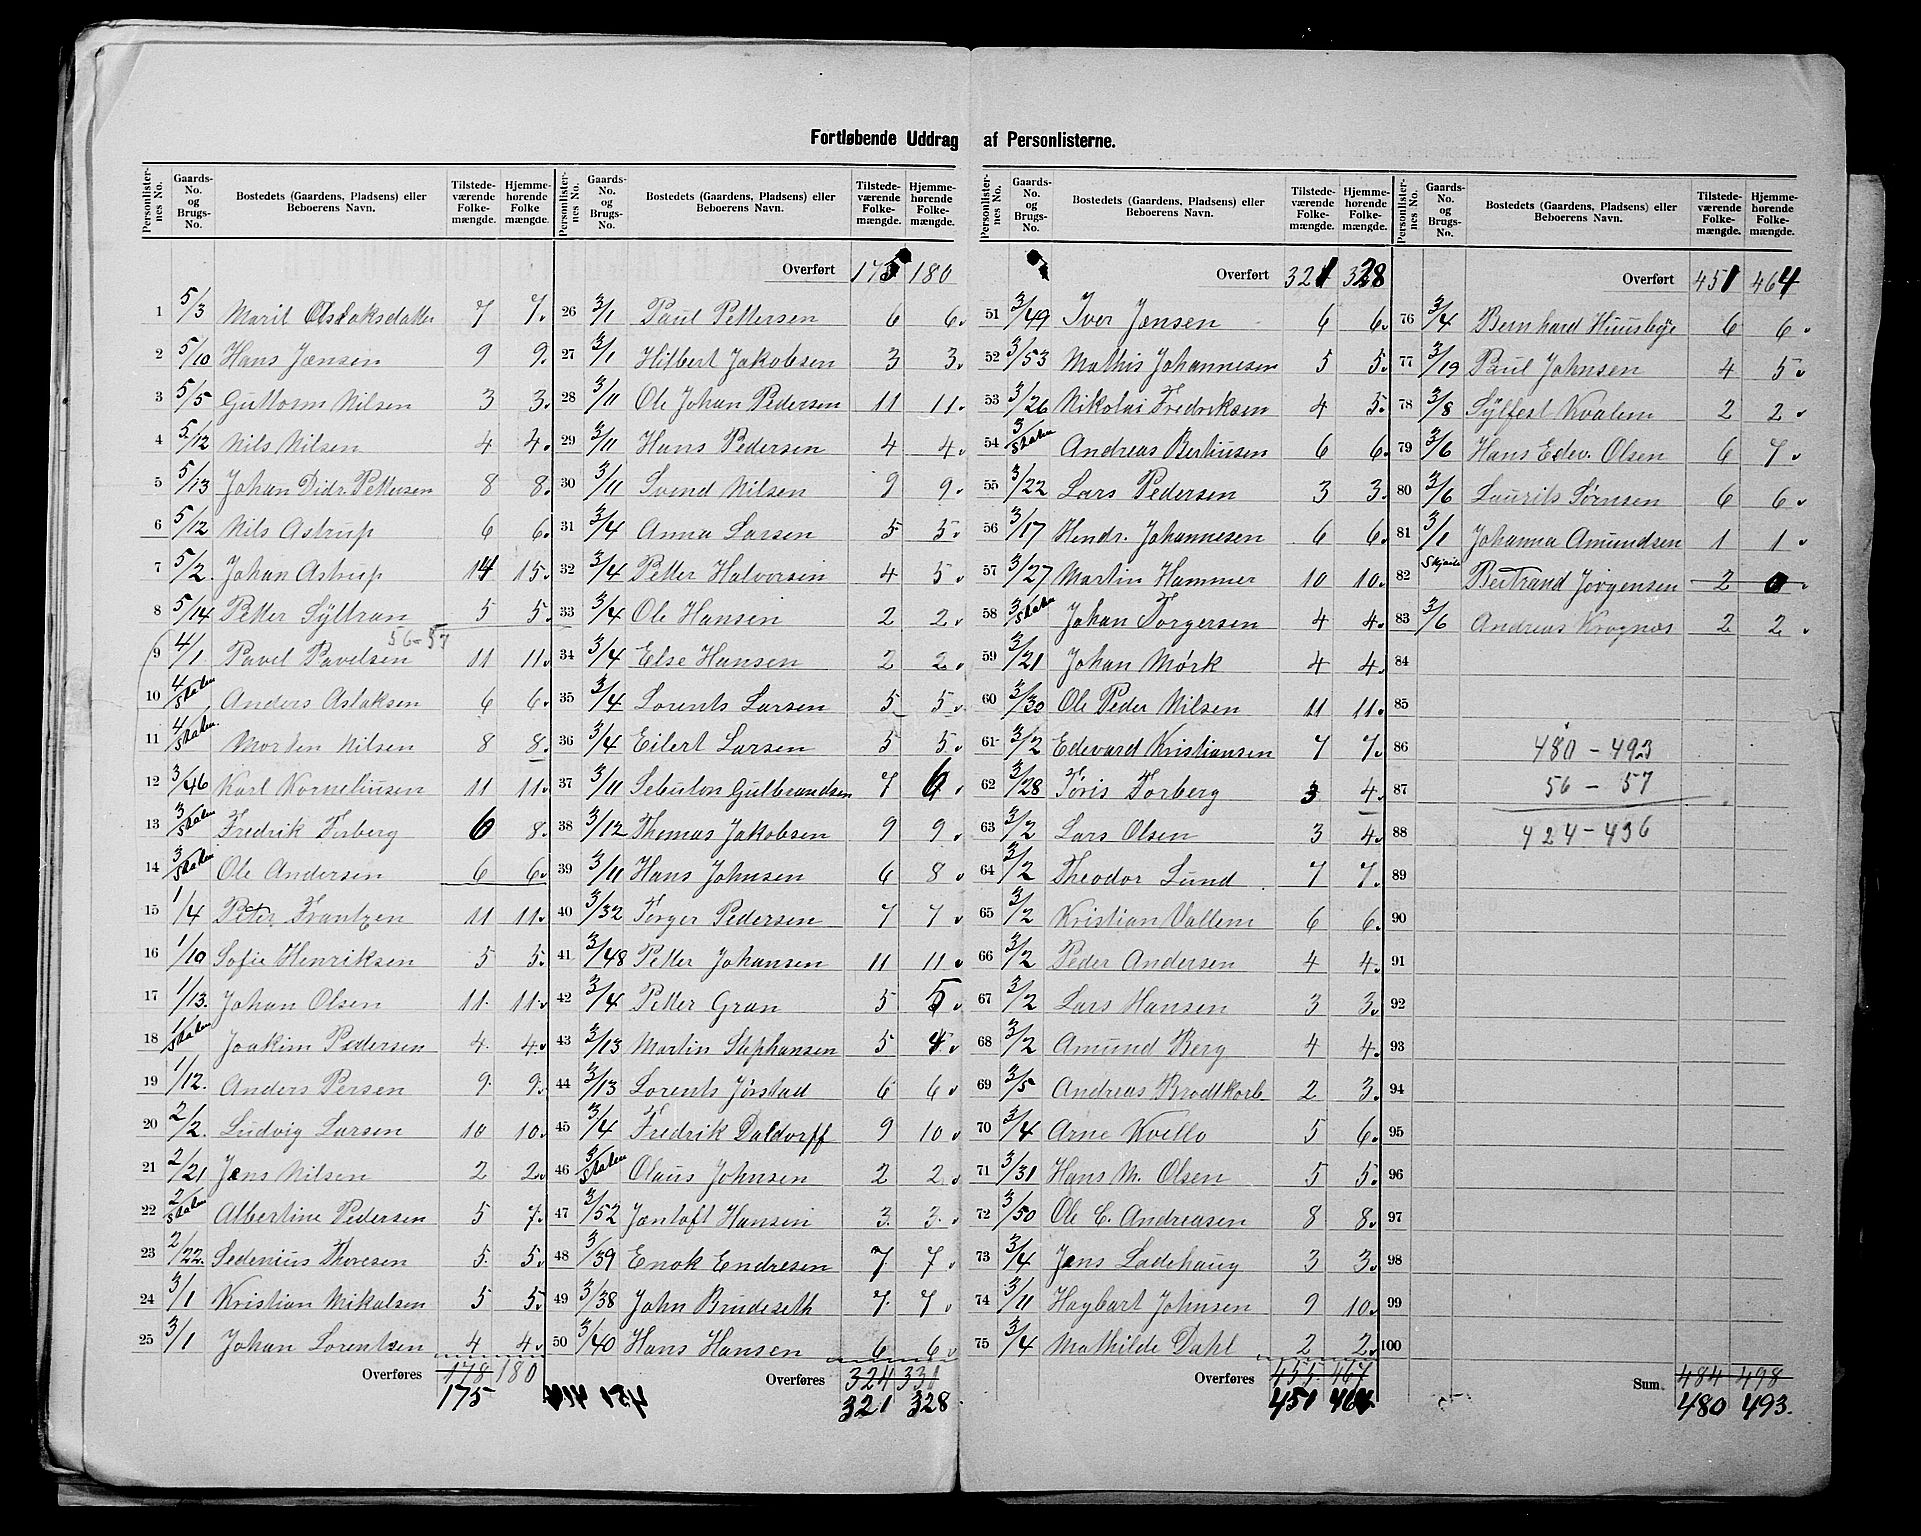 Fortløbende Uddrag af Personlisterne.
Personlister- nes No. | Gaards- No. og Brugs- No. | Bostedets (Gaardens, Pladsens) eller Beboerens Navn. | Tilstede- værende Folke- mængde. | Hjemme- hørende Folke- mængde.
1 5/3 Marit Olslaksdatter 7 7
2 5/10 Hans Jensen 9 9
3 5/5 Guttorm Nilsen 3 3
4 5/12 Nils Nilsen 4 4
5 5/13 Johan Didr. Pettersen 8 8
6 5/12 Nils Astrup 6 6
7 5/2 Johan Astrup 14 15
8 5/14 Petter Syltran 5 5
56-57
9 4/1 Pavel Pavelsen 11 11
10 4/Staten Anders Aslaksen 6 6
11 4/Staten Morten Nilsen 8 8
12 3/46 Karl Korneliusen 11 11
13 3/Staten Fredrik Forberg 6 8
14 3/Staten Ole Andersen 6 6
15 1/4 Peter Frantzen 11 11
16 1/10 Sofie Henriksen 5 5
17 1/13 Johan Olsen 11 11
18 1/Staten Joakim Pedersen 4 4
19 1/12 Anders Persen 9 9
20 2/2 Ludvig Larsen 10 10
21 2/21 Jens Nilsen 2 2
22 2/Staten Albertine Pedersen 5 7
23 2/22 Sedenius Thoresen 5 5
24 3/1 Kristian Mikalsen 5 5
25 3/1 Johan Lorentsen 4 4
Overføres 178 180
175
Personlister- nes No. | Gaards- No. og Brugs- No. | Bostedets (Gaardens, Pladsens) eller Beboerens Navn. | Tilstede- værende Folke- mængde. | Hjemme- hørende Folke- mængde.
Overført 175 180
26 3/1 Paul Pettersen 6 6
27 3/1 Hilbert Jakobsen 3 3
28 3/11 Ole Johan Pedersen 11 11
29 3/11 Hans Pedersen 4 4
30 3/11 Svend Nilsen 9 9
31 3/4 Anna Larsen 5 5
32 3/4 Petter Halvorsen 4 5
33 3/4 Ole Hansen 2 2
34 3/4 Else Hansen 2 2
35 3/4 Lorents Larsen 5 5
36 3/4 Eilert Larsen 5 5
37 3/11 Sebulon Gulbrandsen 7 6
38 3/12 Thomas Jakobsen 9 9
39 3/11 Hans Johnsen 6 8
40 3/32 Torger Pedersen 7 7
41 3/48 Petter Johansen 11 11
42 3/4 Petter Gran 5 5
43 3/13 Martin Stephansen 5 4
44 3/13 Lorents Jørstad 6 6
45 3/4 Fredrik Daldorff 9 10
46 3/Staten Olaus Johnsen 2 2
47 3/52 Jentoft Hansen 3 3
48 3/39 Enok Endresen 7 7
49 3/38 John Brudeseth 7 7
50 3/40 Hans Hansen 6 6
Overføres 324 330
321 328
Personlister- nes No. | Gaards- No. og Brugs- No. | Bostedets (Gaardens, Pladsens) eller Beboerens Navn. | Tilstede- værende Folke- mængde. | Hjemme- hørende Folke- mængde.
Overført 321 328
51 3/49 Iver Jensen 6 6
52 3/53 Mathis Johannesen 5 5
53 3/26 Nikolai Fredriksen 4 5
54 3/Staten Andreas Berthiusen 6 6
55 3/22 Lars Pedersen 3 3
56 3/17 Hendr. Johannesen 6 6
57 3/27 Martin Hammer 10 10
58 3/Staten Johan Torgersen 4 4
59 3/21 Johan Mørk 4 4
60 3/30 Ole Peder Nilsen 11 11
61 3/2 Edevard Kristiansen 7 7
62 3/28 Joris Torberg 3 4
63 3/2 Lars Olsen 3 4
64 3/2 Theodor Lund 7 7
65 3/2 Kristian Vallem 6 6
66 3/2 Peder Andersen 4 4
67 3/2 Lars Hansen 3 3
68 3/2 Amund Berg 4 4
69 3/5 Andreas Brodtkorb 2 3
70 3/4 Arne Kvello 5 6
71 3/31 Hans M. Olsen 5 5
72 3/50 Ole C. Andreasen 8 8
73 3/4 Jens Ladehaug 3 3
74 3/11 Hagbart Johnsen 9 10
75 3/4 Mathilde Dahl 2 2
Overføres 455 467
451 464
Personlister- nes No. | Gaards- No. og Brugs- No. | Bostedets (Gaardens, Pladsens) eller Beboerens Navn. | Tilstede- værende Folke- mængde. | Hjemme- hørende Folke- mængde.
Overført 451 464
76 3/4 Bernhard Huusbye 6 6
77 3/19 Paul Johnsen 4 5
78 3/8 Sylfest Kvalem 2 2
79 3/6 Hans Edev. Olsen 6 7
80 3/6 Laurits Sørnsen 6 6
81 3/1 Johanna Amundsen 1 1
82 Bertrand Jørgensen 2 0
83 3/6 Andreas Krognæs 2 2
84
85
86 480 - 493
87 56 - 57
88 424 - 436
89
90
91
92
93
94
95
96
97
98
99
100
Sum 484 498
480 493.